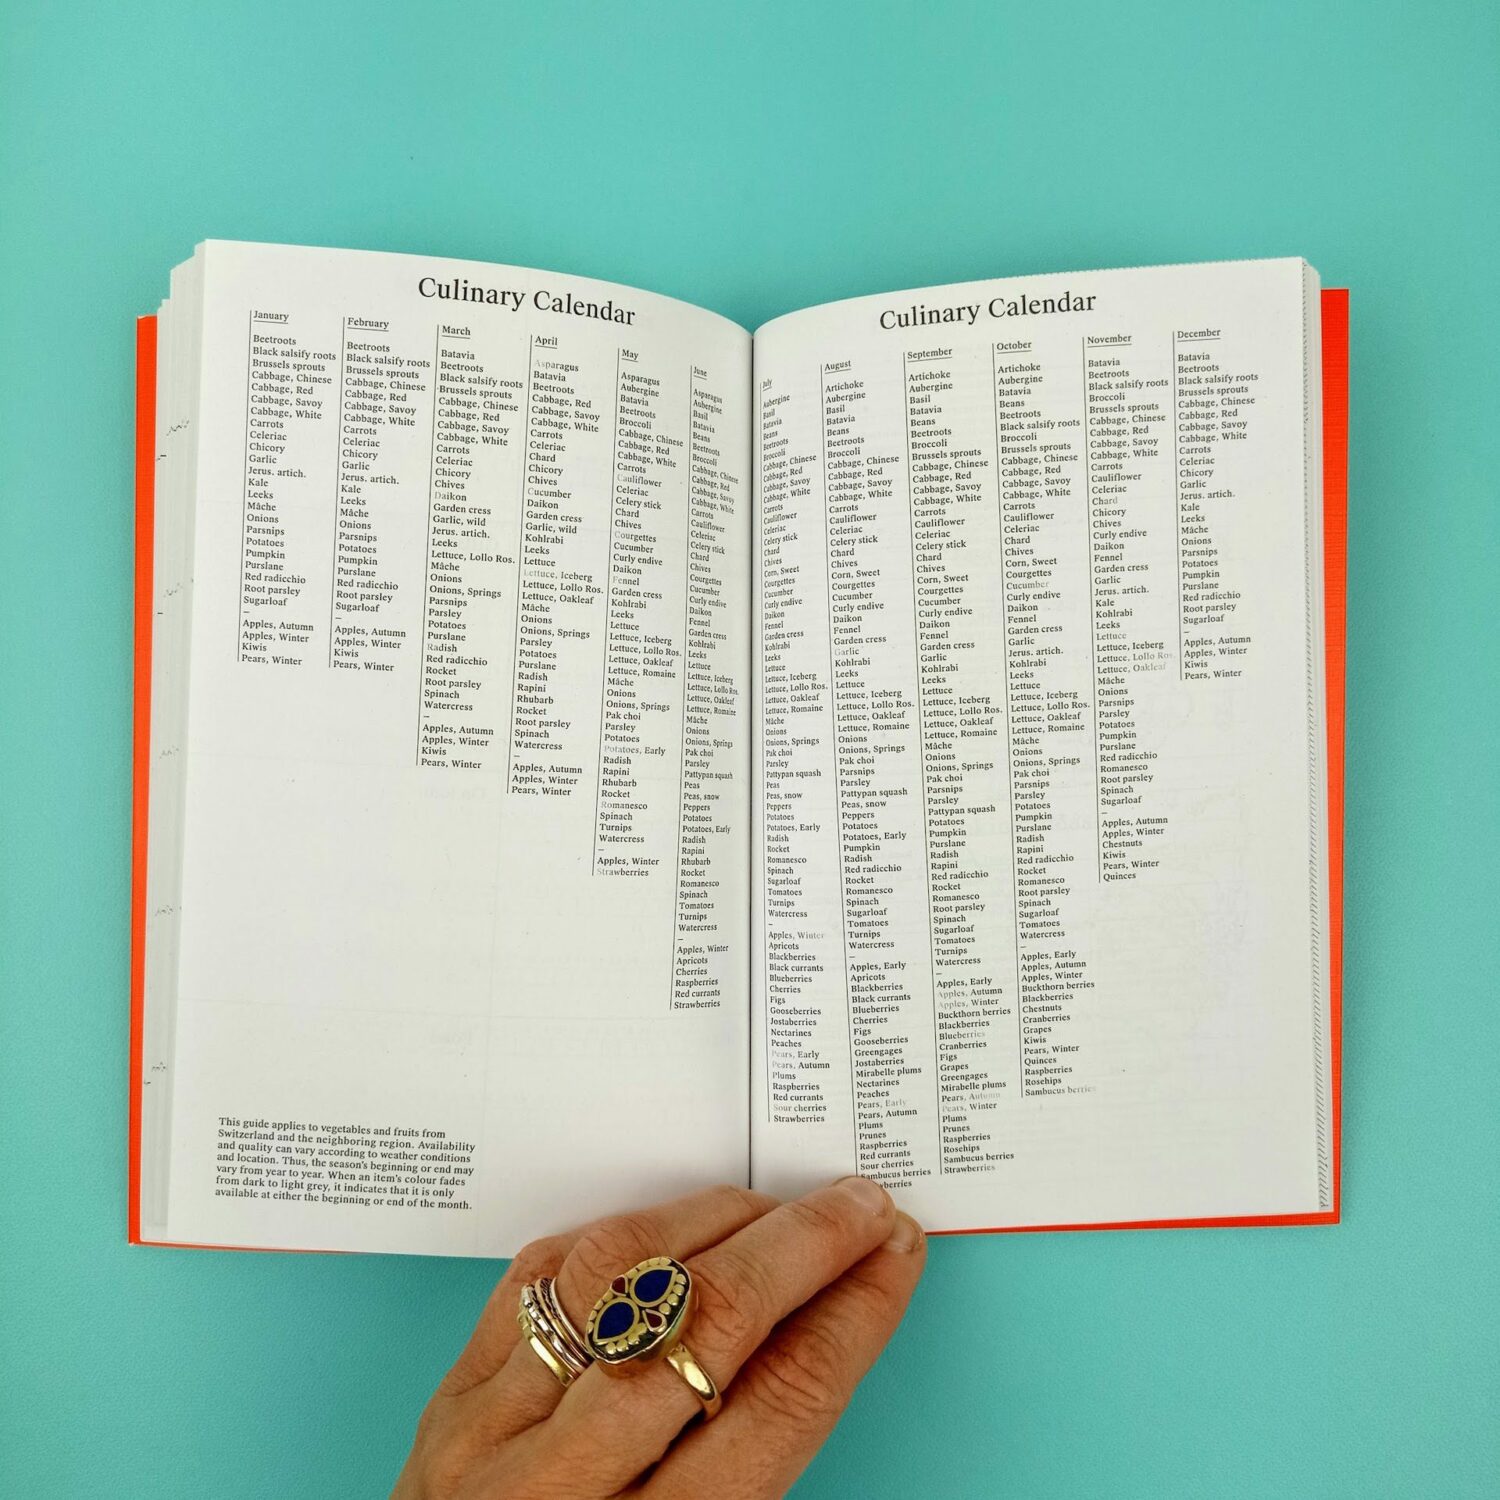 Culinary Calendar
January
Beetroots
Black salsify roots
Brussels sprouts
Cabbage, Chinese
Cabbage, Red
Cabbage, Savoy
Cabbage, White
Carrots
Celeriac
Chicory
Garlic
Jerus. artich.
Kale
Leeks
Mâche
Onions
Parsnips
Potatoes
Pumpkin
Purslane
Red radicchio
Root parsley
Sugarloaf
–
Apples, Autumn
Apples, Winter
Kiwis
Pears, Winter
February
Beetroots
Black salsify roots
Brussels sprouts
Cabbage, Chinese
Cabbage, Red
Cabbage, Savoy
Cabbage, White
Carrots
Celeriac
Chicory
Garlic
Jerus. artich.
Kale
Leeks
Mâche
Onions
Parsnips
Potatoes
Pumpkin
Purslane
Red radicchio
Root parsley
Sugarloaf
–
Apples, Autumn
Apples, Winter
Kiwis
Pears, Winter
March
Batavia
Beetroots
Black salsify roots
Brussels sprouts
Cabbage, Chinese
Cabbage, Red
Cabbage, Savoy
Cabbage, White
Carrots
Celeriac
Chicory
Chives
Daikon
Garden cress
Garlic, wild
Jerus. artich.
Leeks
Lettuce, Lollo Ros.
Mâche
Onions
Onions, Springs
Parsnips
Parsley
Potatoes
Purslane
Radish
Red radicchio
Rocket
Root parsley
Spinach
Watercress
–
Apples, Autumn
Apples, Winter
Kiwis
Pears, Winter
April
Asparagus
Batavia
Beetroots
Cabbage, Red
Cabbage, Savoy
Cabbage, White
Carrots
Celeriac
Chard
Chicory
Chives
Cucumber
Daikon
Garden cress
Garlic, wild
Kohlrabi
Leeks
Lettuce
Lettuce, Iceberg
Lettuce, Lollo Ros.
Lettuce, Oakleaf
Mâche
Onions
Onions, Springs
Parsley
Potatoes
Purslane
Radish
Rapini
Rhubarb
Rocket
Root parsley
Spinach
Watercress
–
Apples, Autumn
Apples, Winter
Pears, Winter
May
Asparagus
Aubergine
Batavia
Beetroots
Broccoli
Cabbage, Chinese
Cabbage, Red
Cabbage, White
Carrots
Cauliflower
Celeriac
Celery stick
Chard
Chives
Courgettes
Cucumber
Curly endive
Daikon
Fennel
Garden cress
Kohlrabi
Leeks
Lettuce
Lettuce, Iceberg
Lettuce, Lollo Ros.
Lettuce, Oakleaf
Lettuce, Romaine
Mâche
Onions
Onions, Springs
Pak choi
Parsley
Potatoes
Potatoes, Early
Radish
Rapini
Rhubarb
Rocket
Romanesco
Spinach
Turnips
Watercress
–
Apples, Winter
Strawberries
June
Asparagus
Aubergine
Basil
Batavia
Beans
Beetroots
Broccoli
Cabbage, Chinese
Cabbage, Red
Cabbage, Savoy
Cabbage, White
Carrots
Cauliflower
Celeriac
Celery stick
Chard
Chives
Courgettes
Cucumber
Curly endive
Daikon
Fennel
Garden cress
Kohlrabi
Leeks
Lettuce
Lettuce, Iceberg
Lettuce, Lollo Ros.
Lettuce, Oakleaf
Lettuce, Romaine
Mâche
Onions
Onions, Springs
Pak choi
Parsley
Pattypan squash
Peas
Peas, snow
Peppers
Potatoes
Potatoes, Early
Radish
Rapini
Rhubarb
Rocket
Romanesco
Spinach
Tomatoes
Turnips
Watercress
–
Apples, Winter
Apricots
Cherries
Raspberries
Red currants
Strawberries
This guide applies to vegetables and fruits from
Switzerland and the neighboring region. Availability
and quality can vary according to weather conditions
and location. Thus, the season's beginning or end may
vary from year to year. When an item's colour fades
from dark to light grey, it indicates that it is only
available at either the beginning or end of the month.
Culinary Calendar
July
Aubergine
Basil
Batavia
Beans
Beetroots
Broccoli
Cabbage, Chinese
Cabbage, Red
Cabbage, Savoy
Cabbage, White
Carrots
Cauliflower
Celeriac
Celery stick
Chard
Chives
Corn, Sweet
Courgettes
Cucumber
Curly endive
Daikon
Fennel
Garden cress
Kohlrabi
Leeks
Lettuce
Lettuce, Iceberg
Lettuce, Lollo Ros.
Lettuce, Oakleaf
Lettuce, Romaine
Mâche
Onions
Onions, Springs
Pak choi
Parsley
Pattypan squash
Peas
Peas, snow
Peppers
Potatoes
Potatoes, Early
Radish
Rocket
Romanesco
Spinach
Sugarloaf
Tomatoes
Turnips
Watercress
–
Apples, Winter
Apricots
Blackberries
Black currants
Blueberries
Cherries
Figs
Gooseberries
Jostaberries
Nectarines
Peaches
Pears, Early
Pears, Autumn
Plums
Raspberries
Red currants
Sour cherries
Strawberries
August
Artichoke
Aubergine
Basil
Batavia
Beans
Beetroots
Broccoli
Cabbage, Chinese
Cabbage, Red
Cabbage, Savoy
Cabbage, White
Carrots
Cauliflower
Celeriac
Celery stick
Chard
Chives
Corn, Sweet
Courgettes
Cucumber
Curly endive
Daikon
Fennel
Garden cress
Garlic
Kohlrabi
Leeks
Lettuce
Lettuce, Iceberg
Lettuce, Lollo Ros.
Lettuce, Oakleaf
Lettuce, Romaine
Onions
Onions, Springs
Pak choi
Parsnips
Parsley
Pattypan squash
Peas, snow
Peppers
Potatoes
Potatoes, Early
Pumpkin
Radish
Red radicchio
Rocket
Romanesco
Spinach
Sugarloaf
Tomatoes
Turnips
Watercress
–
Apples, Early
Apricots
Blackberries
Black currants
Blueberries
Cherries
Figs
Gooseberries
Greengages
Jostaberries
Mirabelle plums
Nectarines
Peaches
Pears, Early
Pears, Autumn
Plums
Prunes
Raspberries
Red currants
Sour cherries
Sambucus berries
wberries
September
Artichoke
Aubergine
Basil
Batavia
Beans
Beetroots
Broccoli
Cabbage, Chinese
Cabbage, Red
Cabbage, Savoy
Cabbage, White
Carrots
Cauliflower
Celeriac
Celery stick
Chard
Chives
Corn, Sweet
Courgettes
Cucumber
Curly endive
Daikon
Fennel
Garden cress
Garlic
Kohlrabi
Leeks
Lettuce
Lettuce, Iceberg
Lettuce, Lollo Ros.
Lettuce, Oakleaf
Lettuce, Romaine
Mâche
Onions
Onions, Springs
Pak choi
Parsnips
Parsley
Pattypan squash
Potatoes
Pumpkin
Purslane
Radish
Rapini
Red radicchio
Rocket
Romanesco
Root parsley
Spinach
Sugarloaf
Tomatoes
Turnips
Watercress
–
Apples, Early
Apples, Autumn
Apples, Winter
Buckthorn berries
Blackberries
Blueberries
Cranberries
Figs
Grapes
Greengages
Mirabelle plums
Pears, Autumn
Pears, Winter
Plums
Prunes
Raspberries
Rosehips
Sambucus berries
Strawberries
October
Artichoke
Aubergine
Batavia
Beans
Beetroots
Black salsify roots
Broccoli
Brussels sprouts
Cabbage, Chinese
Cabbage, Red
Cabbage, Savoy
Cabbage, White
Carrots
Cauliflower
Celeriac
Chard
Chives
Corn, Sweet
Courgettes
Cucumber
Curly endive
Daikon
Fennel
Garden cress
Garlic
Jerus. artich.
Kohlrabi
Leeks
Lettuce
Lettuce, Iceberg
Lettuce, Lollo Ros.
Lettuce, Oakleaf
Lettuce, Romaine
Mâche
Onions
Onions, Springs
Pak choi
Parsnips
Parsley
Potatoes
Pumpkin
Purslane
Radish
Rapini
Red radicchio
Rocket
Romanesco
Root parsley
Spinach
Sugarloaf
Tomatoes
Watercress
–
Apples, Early
Apples, Autumn
Apples, Winter
Buckthorn berries
Blackberries
Chestnuts
Cranberries
Grapes
Kiwis
Pears, Winter
Quinces
Raspberries
Rosehips
Sambucus berries
November
Batavia
Beetroots
Black salsify roots
Broccoli
Brussels sprouts
Cabbage, Chinese
Cabbage, Red
Cabbage, Savoy
Cabbage, White
Carrots
Cauliflower
Celeriac
Chard
Chicory
Chives
Curly endive
Daikon
Fennel
Garden cress
Garlic
Jerus. artich.
Kale
Kohlrabi
Leeks
Lettuce
Lettuce, Iceberg
Lettuce, Lollo Ros.
Lettuce, Oakleaf
Mâche
Onions
Parsnips
Parsley
Potatoes
Pumpkin
Purslane
Red radicchio
Romanesco
Root parsley
Spinach
Sugarloaf
–
Apples, Autumn
Apples, Winter
Chestnuts
Kiwis
Pears, Winter
Quinces
December
Batavia
Beetroots
Black salsify roots
Brussels sprouts
Cabbage, Chinese
Cabbage, Red
Cabbage, Savoy
Cabbage, White
Carrots
Celeriac
Chicory
Garlic
Jerus. artich.
Kale
Leeks
Mâche
Onions
Parsnips
Potatoes
Pumpkin
Purslane
Red radicchio
Root parsley
Sugarloaf
–
Apples, Autumn
Apples, Winter
Kiwis
Pears, Winter